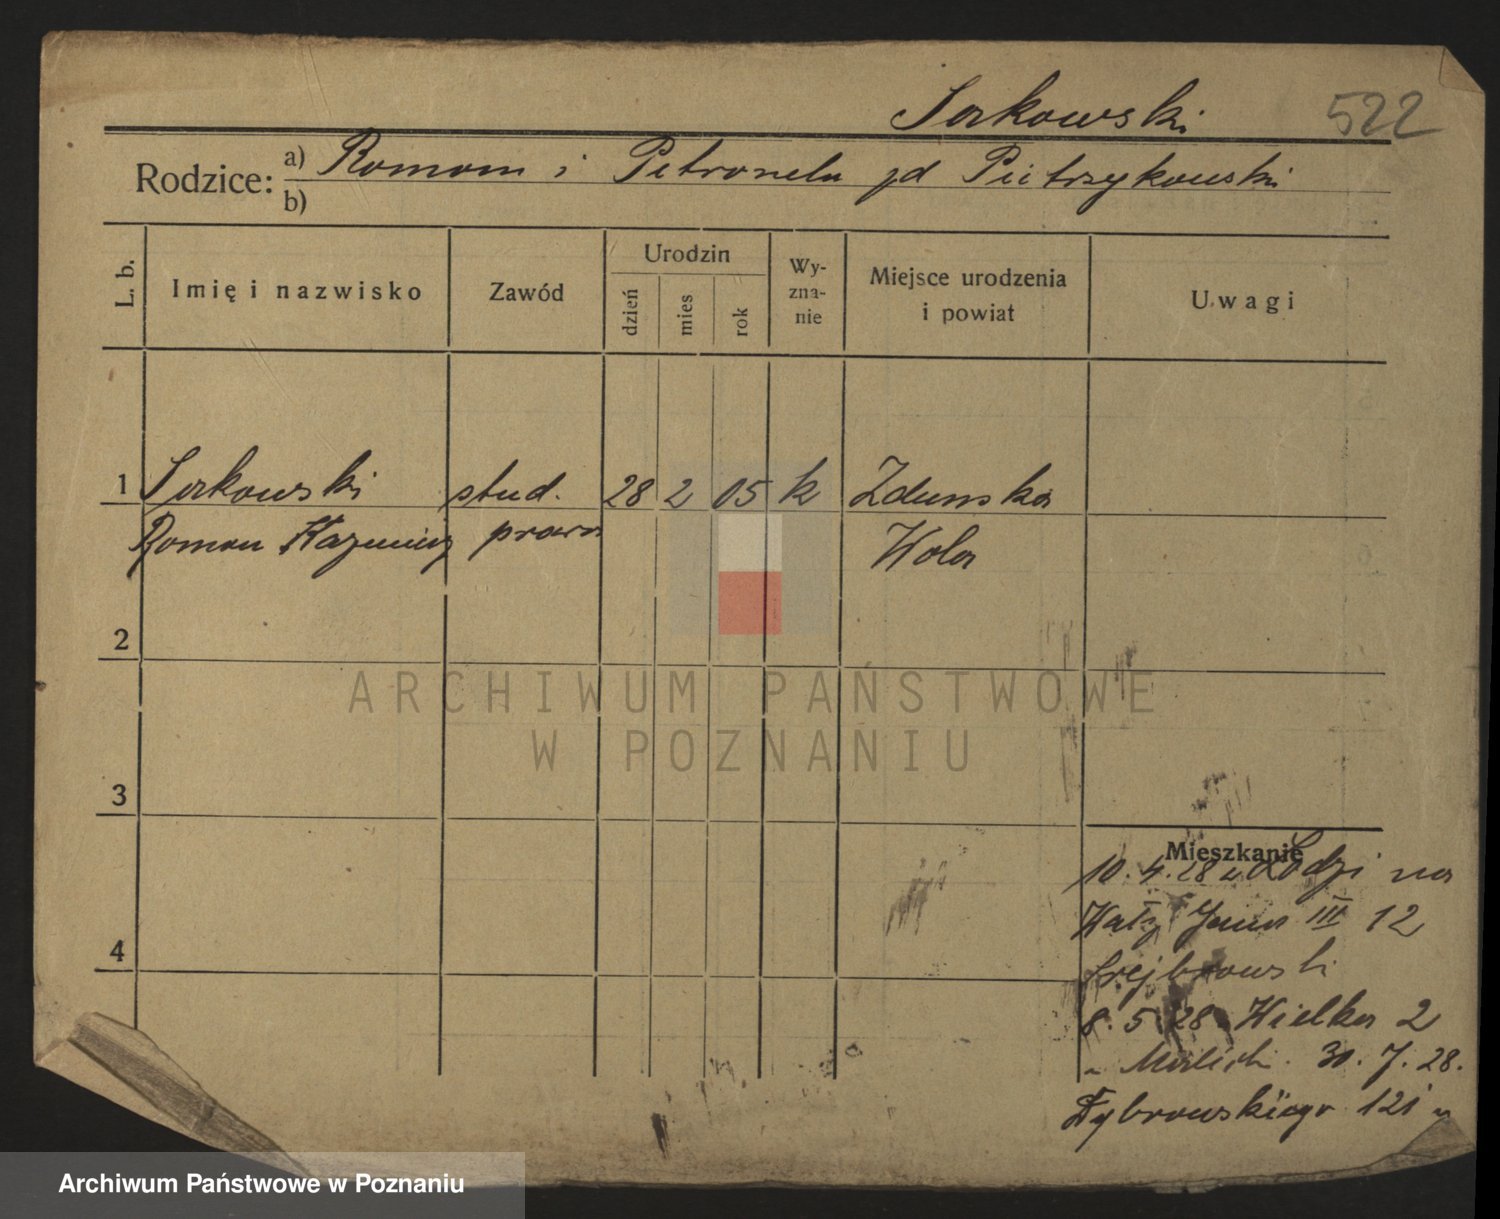 Sorkowski 522
Rodzice: a) Roman i Petronela zd Pietrzykowski
b)
L. b. Imię i nazwisko Zawód Urodzin dzień mies rok Wy-zna-nie Miejsce urodzenia i powiat Uwagi
1 Sorkowski stud. 28 2 05 k Zduńska
Roman Kazimierz prawa Wola
2
ARCHIWUM PAŃSTWOWE
W POZNANIU
3
Mieszkanie
10. 4. 28 z Łodzi na
Wały Jana III 12
4
8. 5 28 Wielka 2
31. 7. 28.
Dąbrowskiego 121
Archiwum Państwowe w Poznaniu